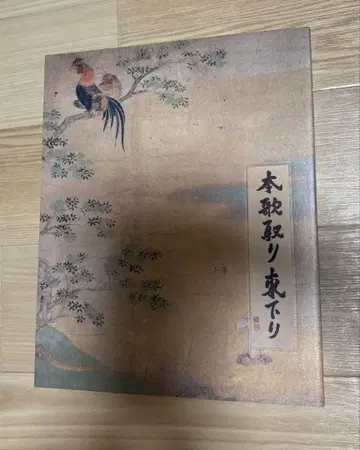 本歌取り東下り